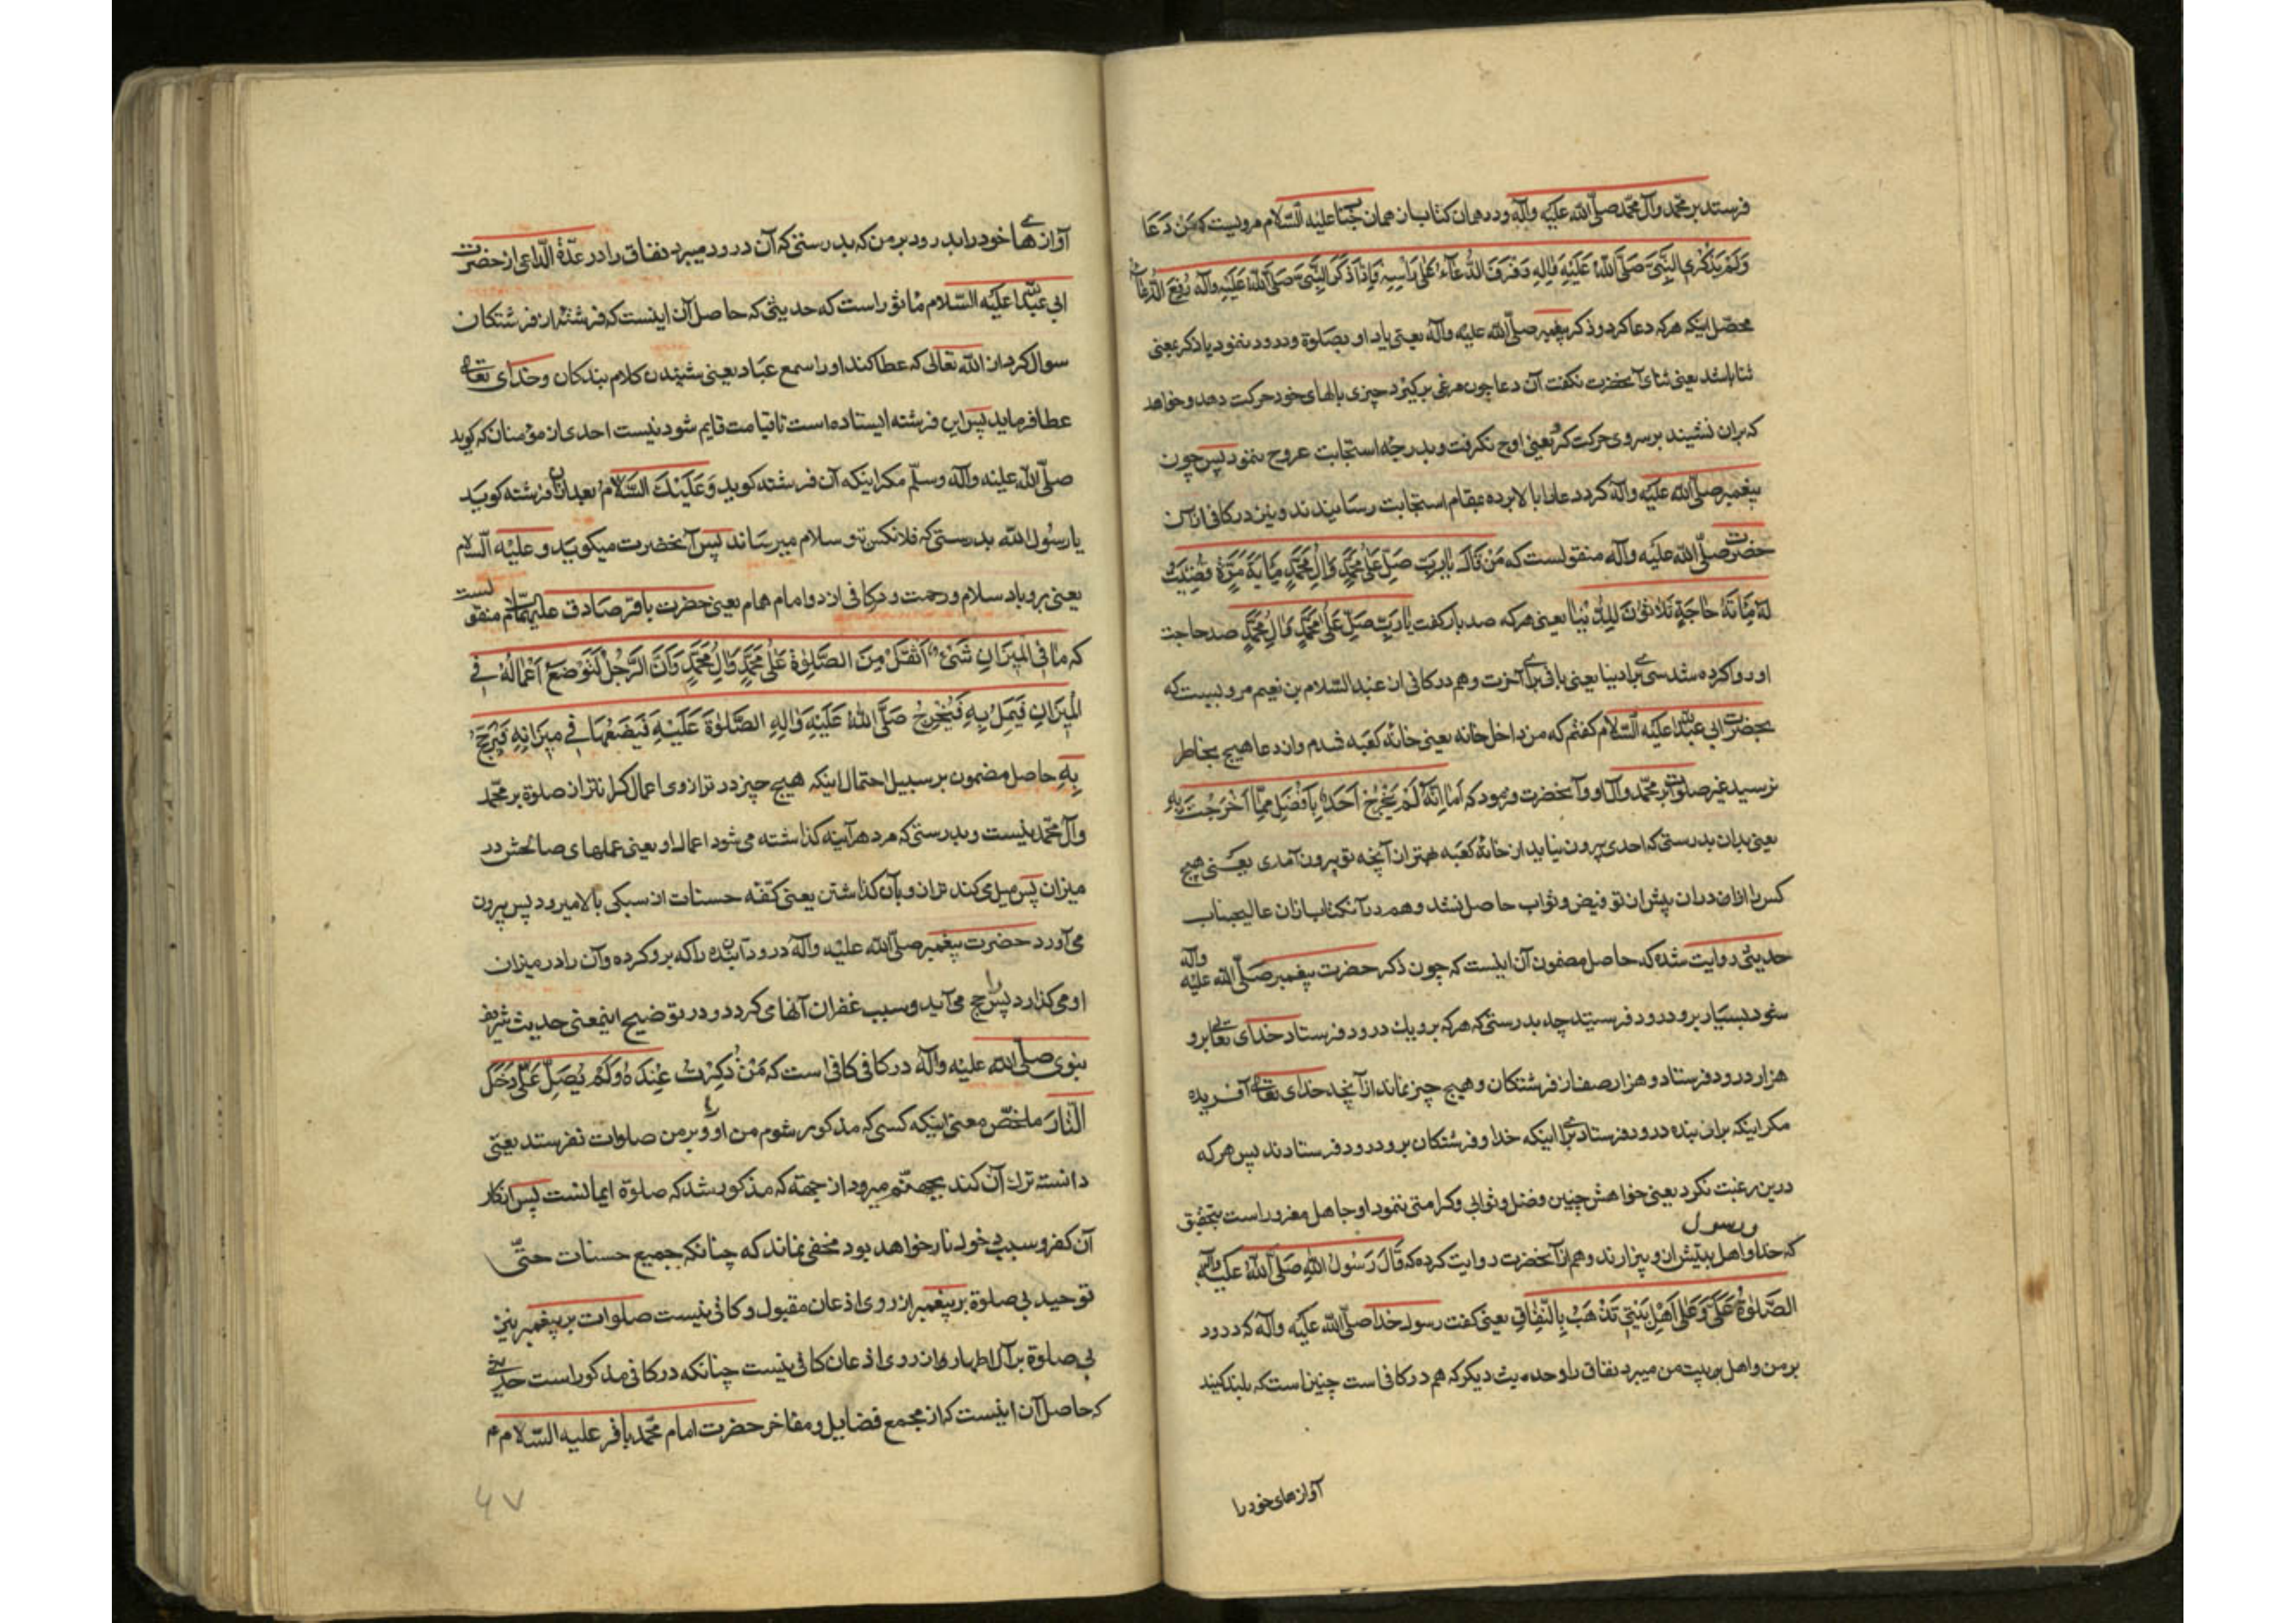 فرستد بر محمد وآل محمد صلّی الله علیه وآله ودر همان کتاب از همان جناب علیه السّلام مرویست که مَنْ دَعَا
وَلَمْ یَذْکُرِ النَّبِیَّ صَلَّی اللهُ عَلَیْهِ وَاٰلِهِ رَفْرَفَ الدُّعَآءُ عَلٰی رَاْسِهِ فَاِذَا ذَکَرَ النَّبِیَّ صَلَّی اللهُ عَلَیْهِ وَآلِه رُفِعَ الدُّعَآءُ
محصّل اینکه هرکه دعا کرد وذکر پیغمبر صلّی الله علیه وآله یعنی یاد او بصلوة ودرود ننمود یا ذکر بمعنی
ثنا باشد یعنی ثنای آنحضرت نکفت آن دعا چون مرغی بر کیرد چیزی بالهای خود حرکت دهد وخواهد
که بران نشیند بر سر وی حرکت کرد یعنی اوج نکرفت وبدرجه استجابت عروج ننمود پس چون
پیغمبر صلّی الله علیه وآله کرد دعا را بالا برده بمقام استجابت رسانیدند ونیز در کافی از آن
حضرت صلّی الله علیه وآله منقولست که مَنْ قَالَ یَارَبِّ صَلِّ عَلٰی مُحَمَّدٍ وَاٰلِ مُحَمَّدٍ مِایَةَ مَرَّةٍ قُضِیَتْ
لَهُ مِائَةُ حَاجَةٍ ثَلَاثُونَ لِلدُّنْیَا یعنی هرکه صد بار کفت یَارَبِّ صَلِّ عَلٰی مُحَمَّدٍ وَاٰلِ مُحَمَّدٍ صد حاجت
او روا کرده شد سی برای دنیا یعنی باقی برای آخرت وهم در کافی از عبد السّلام بن نعیم مرویست که
بحضرت ابی عبد الله علیه السّلام کفتم که من داخل خانه یعنی خانه کعبه شدم واز دعا هیچ بخاطر
نرسید غیر صلوات بر محمّد وآل او وآنحضرت فرمود که اَمَا اِنَّهُ لَمْ یَخْرُجْ اَحَدٌ بِاَفْضَلَ مِمَّا اَخْرَجْتَ بِهِ
یعنی بدان بدرستی که احدی بیرون نیاید از خانه کعبه بهتر از آنچه تو بیرون آمدی یعنی هیچ
کس را ازان دران پیش از تو فیض وثواب حاصل نشد وهم در آنکتاب ازان عالیجناب
حدیثی روایت شده که حاصل مضمون آن اینست که چون ذکر حضرت پیغمبر صلّی الله علیه وآله
شود بسیار برو درود فرستید چه بدرستی که هرکه برو یك درود فرستاد خدای تعالی برو
هزار درود فرستاد وهزار صف از فرشتکان وهیچ چیز نماند از آنچه خدای تعالی آفریده
مکر اینکه بران بنده درود فرستاد برای اینکه خدا وفرشتکان برو درود فرستادند پس هرکه
درین رغبت نکرد یعنی خواهش چنین فضل وثوابی وکرامتی ننمود او جاهل مغرور است بتحقیق
که خدا ورسول واهل بیتش ازو بیزارند وهم از آنحضرت روایت کرده که قَالَ رَسُولُ اللهِ صَلَّی اللهُ عَلَیْهِ وَآلِهِ
الصَّلٰوةُ عَلَیَّ وَعَلٰی اَهْلِ بَیْتِی تَذْهَبُ بِالنِّفَاقِ یعنی کفت رسول خدا صلّی الله علیه وآله که درود
بر من واهل بیت من میبرد نفاق را وحدیث دیکر که هم در کافی است چنین است که بلند کنید
آوازهای خود را
آوازهای خود را بدرود بر من که بدرستی که آن درود میبرد نفاق را در عدّة الدّاعی از حضرت
ابی عبد الله علیه السّلام مأثور است که حدیثی که حاصل آن اینست که فرشته از فرشتکان
سوال کرد از الله تعالی که عطا کند او را سمع عباد یعنی شنیدن کلام بندکان وخدای تعالی
عطا فرماید پس این فرشته ایستاده است تا قیامت قایم شود نیست احدی از مؤمنان که کوید
صلّی الله علیه وآله وسلّم مکر اینکه آن فرشته کوید وَعَلَیْكَ السَّلَامُ بعد ازان فرشته کوید
یا رسُول الله بدرستی که فلانکس تو سلام میرساند پس آنحضرت میکوید وعلیه السّلام
یعنی برو باد سلام ورحمت ودر کافی از دو امام همام یعنی حضرت باقر صادق علیهما السّلام منقولست
که مَا فِی الْمِیزَانِ شَیْءٌ اَثْقَلَ مِنَ الصَّلٰوةِ عَلٰی مُحَمَّدٍ وَاٰلِ مُحَمَّدٍ وَاَنَّ الرَّجُلَ لَتُوضَعُ اَعْمَالُهُ فِی
الْمِیزَانِ فَتَمِیلُ بِهِ فَیُخْرِجُ صَلَّی اللهُ عَلَیْهِ وَاٰلِهِ الصَّلٰوةَ عَلَیْهِ فَیَضَعُهَا فِی مِیزَانِهِ فَیُرَجَّحُ
بِهِ حاصل مضمون بر سبیل احتمال اینکه هیچ چیز در ترازوی اعمال کرانتر از صلوة بر محمّد
وآل محمّد نیست وبدرستی که مرد هر آینه کذاشته می شود اعمال او یعنی عملهای صالحش در
میزان پس میل می کند ترازو بآن کذاشتن یعنی کفّه حسنات از سبکی بالا میرود پس بیرون
می آورد حضرت پیغمبر صلّی الله علیه وآله درود آن بنده را که برو کرده وآن را در میزان
او می کذارد پس راجح می آید وسبب غفران آنها می کردد ودر توضیح اینمعنی حدیث شریف
نبوی صلّی الله علیه وآله در کافی کافی است که مَنْ ذُکِرْتُ عِنْدَهُ وَلَمْ یُصَلِّ عَلَیَّ دَخَلَ
النَّارَ ملخّص معنی اینکه کسی که مذکور شوم من او را وبر من صلوات نفرستد یعنی
دانسته ترك آن کند بجهنّم میرود از جهة که مذکور شد که صلوة ایمانست پس انکار
آن کفر وسبب دخول نار خواهد بود مخفی نماند که چنانکه جمیع حسنات حتّی
توحید بی صلوة بر پیغمبر از روی اذعان مقبول وکافی نیست صلوات بر پیغمبر نیز
بی صلوة بر آل اطهار او از روی اذعان کافی نیست چنانکه در کافی مذکور است حدیثی
که حاصل آن اینست که از مجمع فضایل ومفاخر حضرت امام محمّد باقر علیه السّلام
۶۷